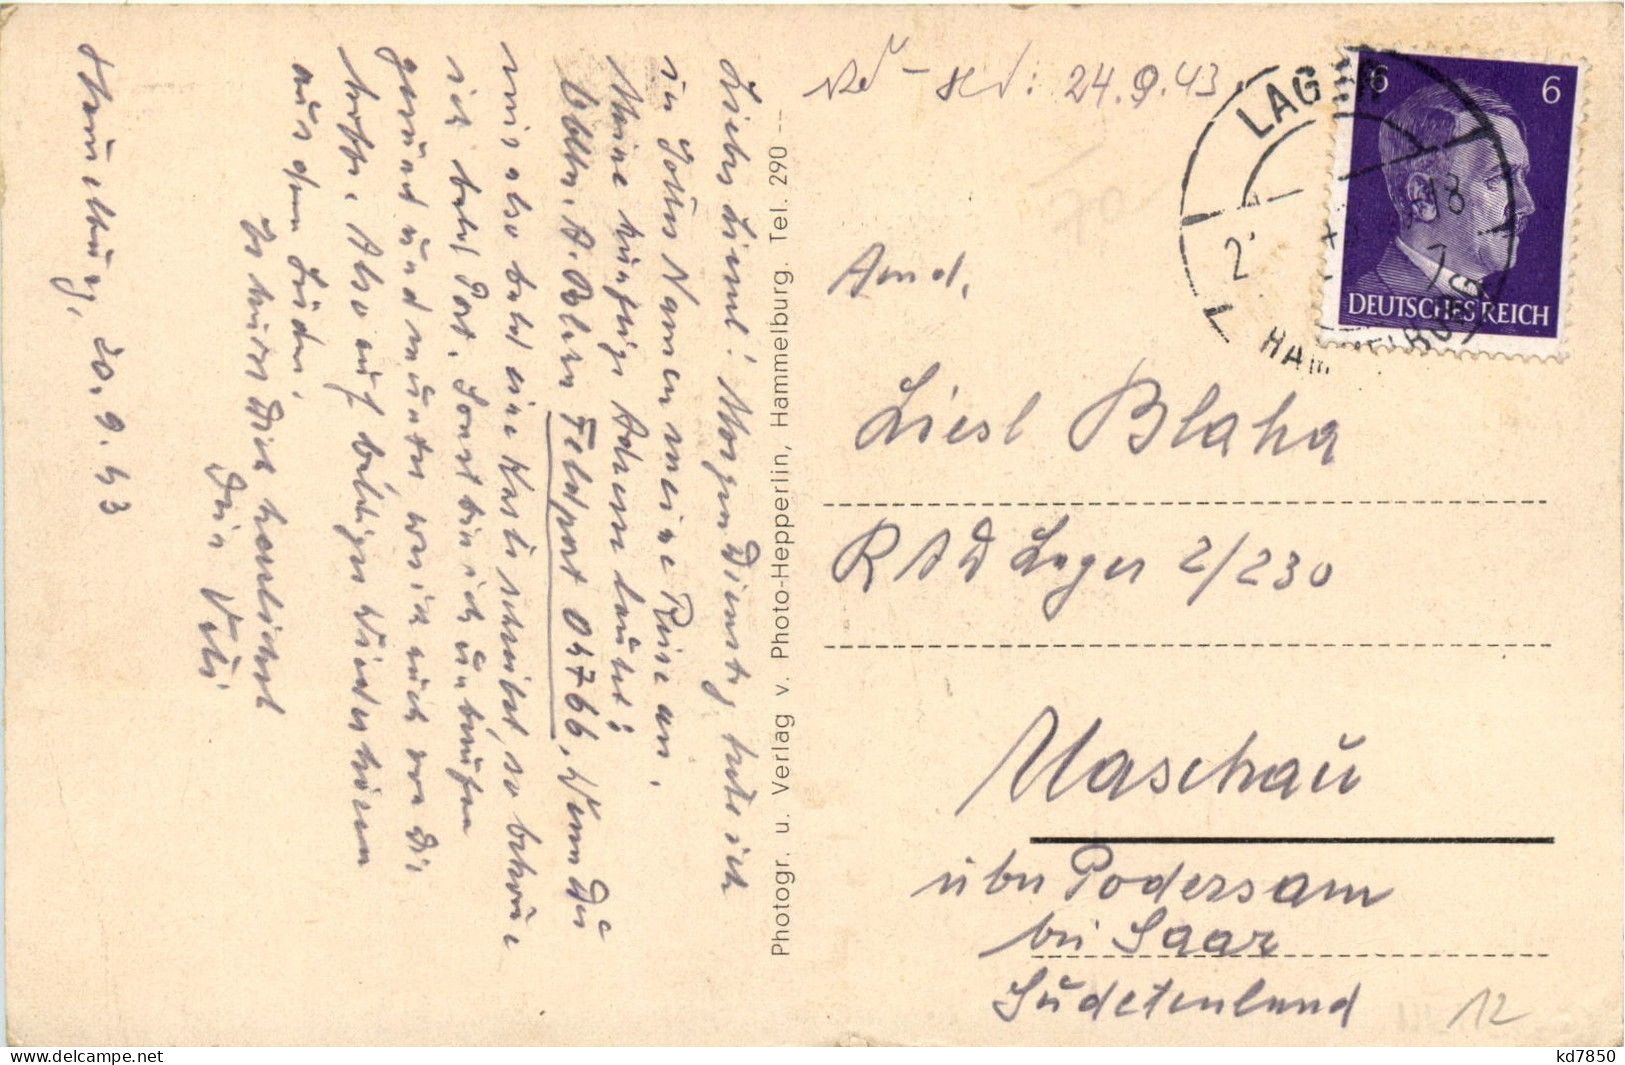 Hammelburg, 20.9.43
Liebes Liesl! Morgen Dienstag trete ich
in Gottes Namen meine Reise an.
Meine künftige Adresse lautet:
Feldpost 04766. Wenn Du
mir also bald eine Karte schreibst, so bekomme
ich bald Post. Sonst bin ich
gesund und munter was ich auch von Dir
hoffe. Also auf baldiges Wiederhören
aus dem Süden.
Es küsst Dich herzlichst
Dein
Photogr. u. Verlag v. Photo-Hepperlin, Hammelburg. Tel. 290
24.9.43
LAGER
HAMMELBURG
6 6
DEUTSCHES REICH
Liesl Blaha
RAD Lager 2/230
Maschau
über Podersam
bei Saaz
Sudetenland
12
kd7850